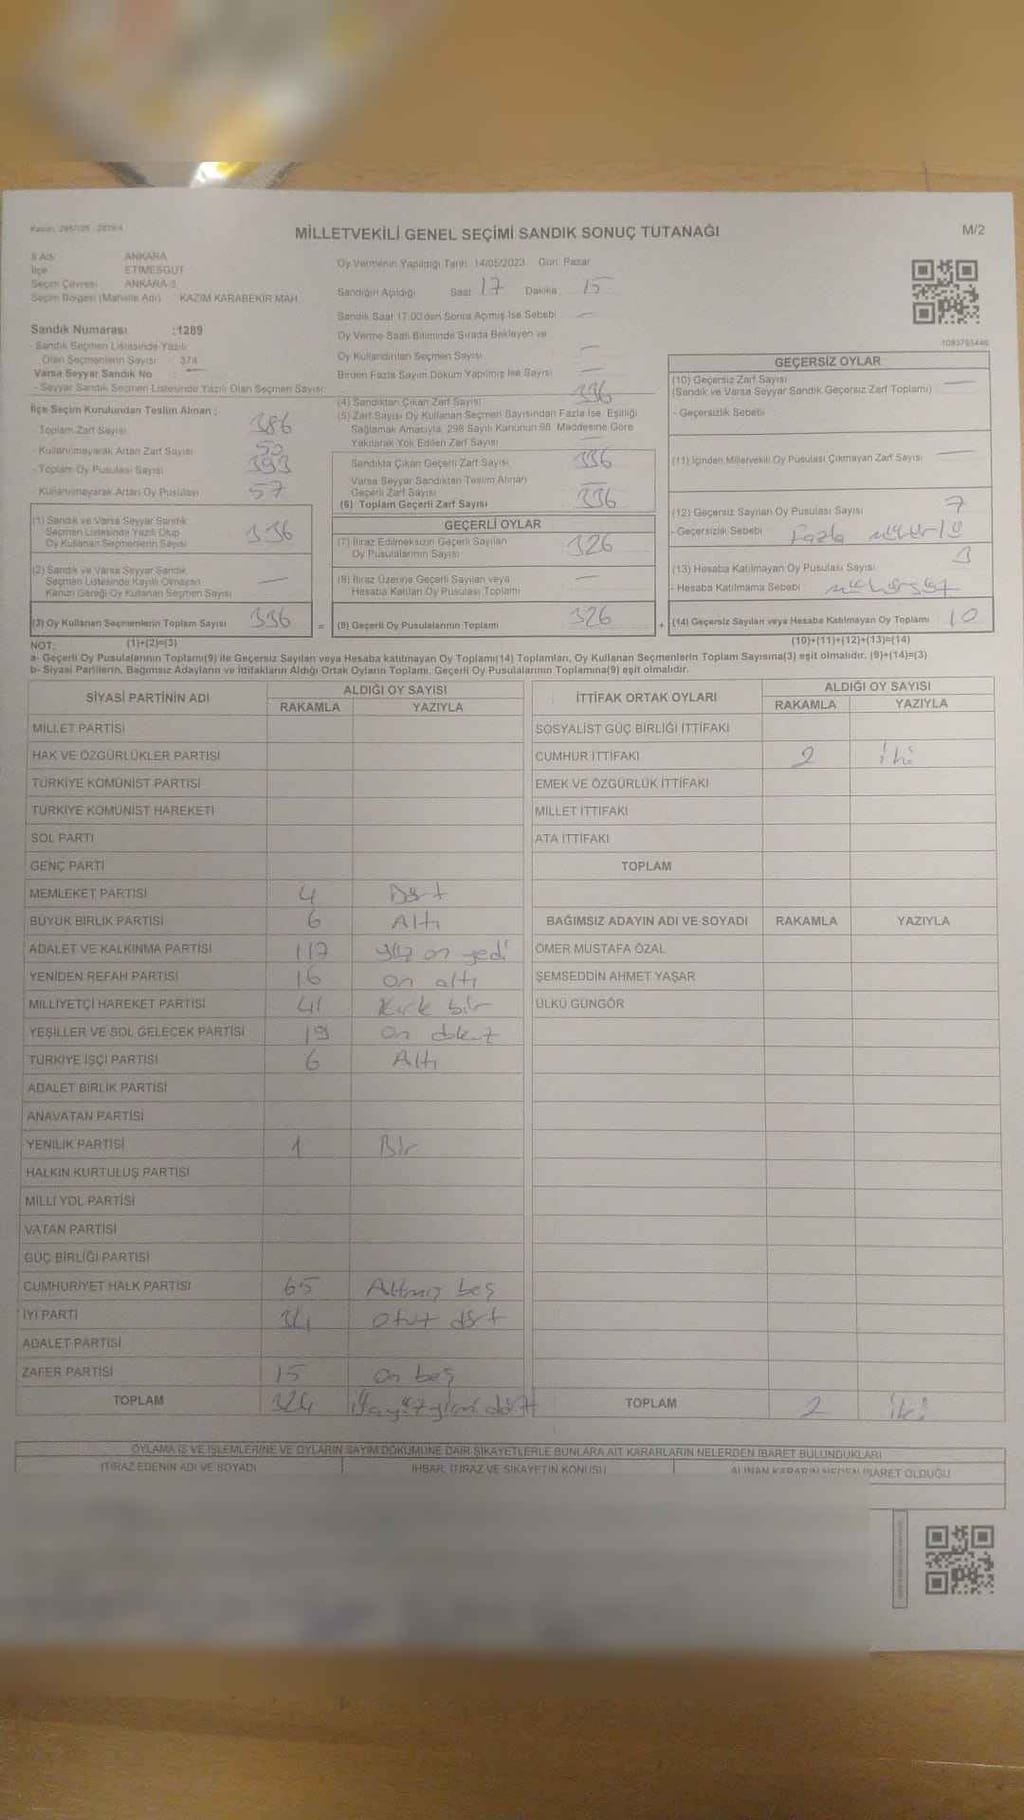 MİLLETVEKİLİ GENEL SEÇİMİ SANDIK SONUÇ TUTANAĞI
M/2
İl Adı ANKARA
İlçe ETİMESGUT
Seçim Çevresi ANKARA-3
Seçim Bölgesi (Mahalle Adı) KAZIM KARABEKİR MAH.
Oy Vermenin Yapıldığı Tarih 14/05/2023 Gün: Pazar
Sandığın Açıldığı Saat 17 Dakika 15
Sandık Saat 17.00'den Sonra Açmış İse Sebebi —
Oy Verme Saati Bitiminde Sırada Bekleyen ve
Oy Kullandırılan Seçmen Sayısı —
Birden Fazla Sayım Döküm Yapılmış İse Sayısı —
Sandık Numarası :1289
- Sandık Seçmen Listesinde Yazılı
Olan Seçmenlerin Sayısı : 374
Varsa Seyyar Sandık No : —
- Seyyar Sandık Seçmen Listesinde Yazılı Olan Seçmen Sayısı:
İlçe Seçim Kurulundan Teslim Alınan :
- Toplam Zarf Sayısı 386
- Kullanılmayarak Artan Zarf Sayısı 50
- Toplam Oy Pusulası Sayısı 393
- Kullanılmayarak Artan Oy Pusulası 57
(1) Sandık ve Varsa Seyyar Sandık
Seçmen Listesinde Yazılı Olup
Oy Kullanan Seçmenlerin Sayısı 336
(2) Sandık ve Varsa Seyyar Sandık
Seçmen Listesinde Kayıtlı Olmayan
Kanun Gereği Oy Kullanan Seçmen Sayısı —
(3) Oy Kullanan Seçmenlerin Toplam Sayısı 336 =
(4) Sandıktan Çıkan Zarf Sayısı 336
(5) Zarf Sayısı Oy Kullanan Seçmen Sayısından Fazla İse, Eşitliği
Sağlamak Amacıyla, 298 Sayılı Kanunun 98. Maddesine Göre
Yakılarak Yok Edilen Zarf Sayısı —
Sandıkta Çıkan Geçerli Zarf Sayısı 336
Varsa Seyyar Sandıktan Teslim Alınan
Geçerli Zarf Sayısı
(6) Toplam Geçerli Zarf Sayısı 336
GEÇERLİ OYLAR
(7) İtiraz Edilmeksizin Geçerli Sayılan
Oy Pusulalarının Sayısı 326
(8) İtiraz Üzerine Geçerli Sayılan veya
Hesaba Katılan Oy Pusulası Toplamı —
(9) Geçerli Oy Pusulalarının Toplamı 326 +
GEÇERSİZ OYLAR
(10) Geçersiz Zarf Sayısı —
(Sandık ve Varsa Seyyar Sandık Geçersiz Zarf Toplamı)
- Geçersizlik Sebebi
(11) İçinden Milletvekili Oy Pusulası Çıkmayan Zarf Sayısı —
(12) Geçersiz Sayılan Oy Pusulası Sayısı 7
- Geçersizlik Sebebi Fazla mühürlü
(13) Hesaba Katılmayan Oy Pusulası Sayısı 3
- Hesaba Katılmama Sebebi mühürsüz
(14) Geçersiz Sayılan veya Hesaba Katılmayan Oy Toplamı 10
NOT: (1)+(2)=(3) (10)+(11)+(12)+(13)=(14)
a- Geçerli Oy Pusulalarının Toplamı(9) ile Geçersiz Sayılan veya Hesaba katılmayan Oy Toplamı(14) Toplamları, Oy Kullanan Seçmenlerin Toplam Sayısına(3) eşit olmalıdır. (9)+(14)=(3)
b- Siyasi Partilerin, Bağımsız Adayların ve İttifakların Aldığı Ortak Oyların Toplamı, Geçerli Oy Pusulalarının Toplamına(9) eşit olmalıdır.
SİYASİ PARTİNİN ADI ALDIĞI OY SAYISI
RAKAMLA YAZIYLA
MİLLET PARTİSİ
HAK VE ÖZGÜRLÜKLER PARTİSİ
TÜRKİYE KOMÜNİST PARTİSİ
TÜRKİYE KOMÜNİST HAREKETİ
SOL PARTİ
GENÇ PARTİ
MEMLEKET PARTİSİ 4 Dört
BÜYÜK BİRLİK PARTİSİ 6 Altı
ADALET VE KALKINMA PARTİSİ 117 yüz on yedi
YENİDEN REFAH PARTİSİ 16 on altı
MİLLİYETÇİ HAREKET PARTİSİ 41 Kırk bir
YEŞİLLER VE SOL GELECEK PARTİSİ 19 on dokuz
TÜRKİYE İŞÇİ PARTİSİ 6 Altı
ADALET BİRLİK PARTİSİ
ANAVATAN PARTİSİ
YENİLİK PARTİSİ 1 Bir
HALKIN KURTULUŞ PARTİSİ
MİLLİ YOL PARTİSİ
VATAN PARTİSİ
GÜÇ BİRLİĞİ PARTİSİ
CUMHURİYET HALK PARTİSİ 65 Altmış beş
İYİ PARTİ 34 otuz dört
ADALET PARTİSİ
ZAFER PARTİSİ 15 on beş
TOPLAM 324 üçyüzyirmi dört
İTTİFAK ORTAK OYLARI ALDIĞI OY SAYISI
RAKAMLA YAZIYLA
SOSYALİST GÜÇ BİRLİĞİ İTTİFAKI
CUMHUR İTTİFAKI 2 iki
EMEK VE ÖZGÜRLÜK İTTİFAKI
MİLLET İTTİFAKI
ATA İTTİFAKI
TOPLAM
BAĞIMSIZ ADAYIN ADI VE SOYADI RAKAMLA YAZIYLA
ÖMER MUSTAFA ÖZAL
ŞEMSEDDİN AHMET YAŞAR
ÜLKÜ GÜNGÖR
TOPLAM 2 iki
OYLAMA İŞ VE İŞLEMLERİNE VE OYLARIN SAYIM DÖKÜMÜNE DAİR ŞİKAYETLERLE BUNLARA AİT KARARLARIN NELERDEN İBARET BULUNDUKLARI
İTİRAZ EDENİN ADI VE SOYADI İHBAR, İTİRAZ VE ŞİKAYETİN KONUSU ALINAN KARARIN NEDEN İBARET OLDUĞU